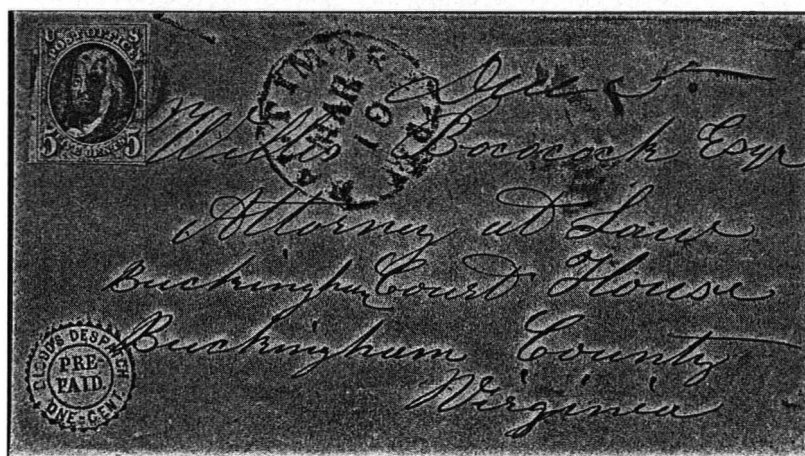 POST OFFICE
5 FIVE CENTS 5
MAR
19
Willis Bocock Esqr
Attorney at Law
Buckingham Court House
Buckingham County
Virginia
BLOOD'S DESPATCH
PRE
PAID.
ONE-CENT.